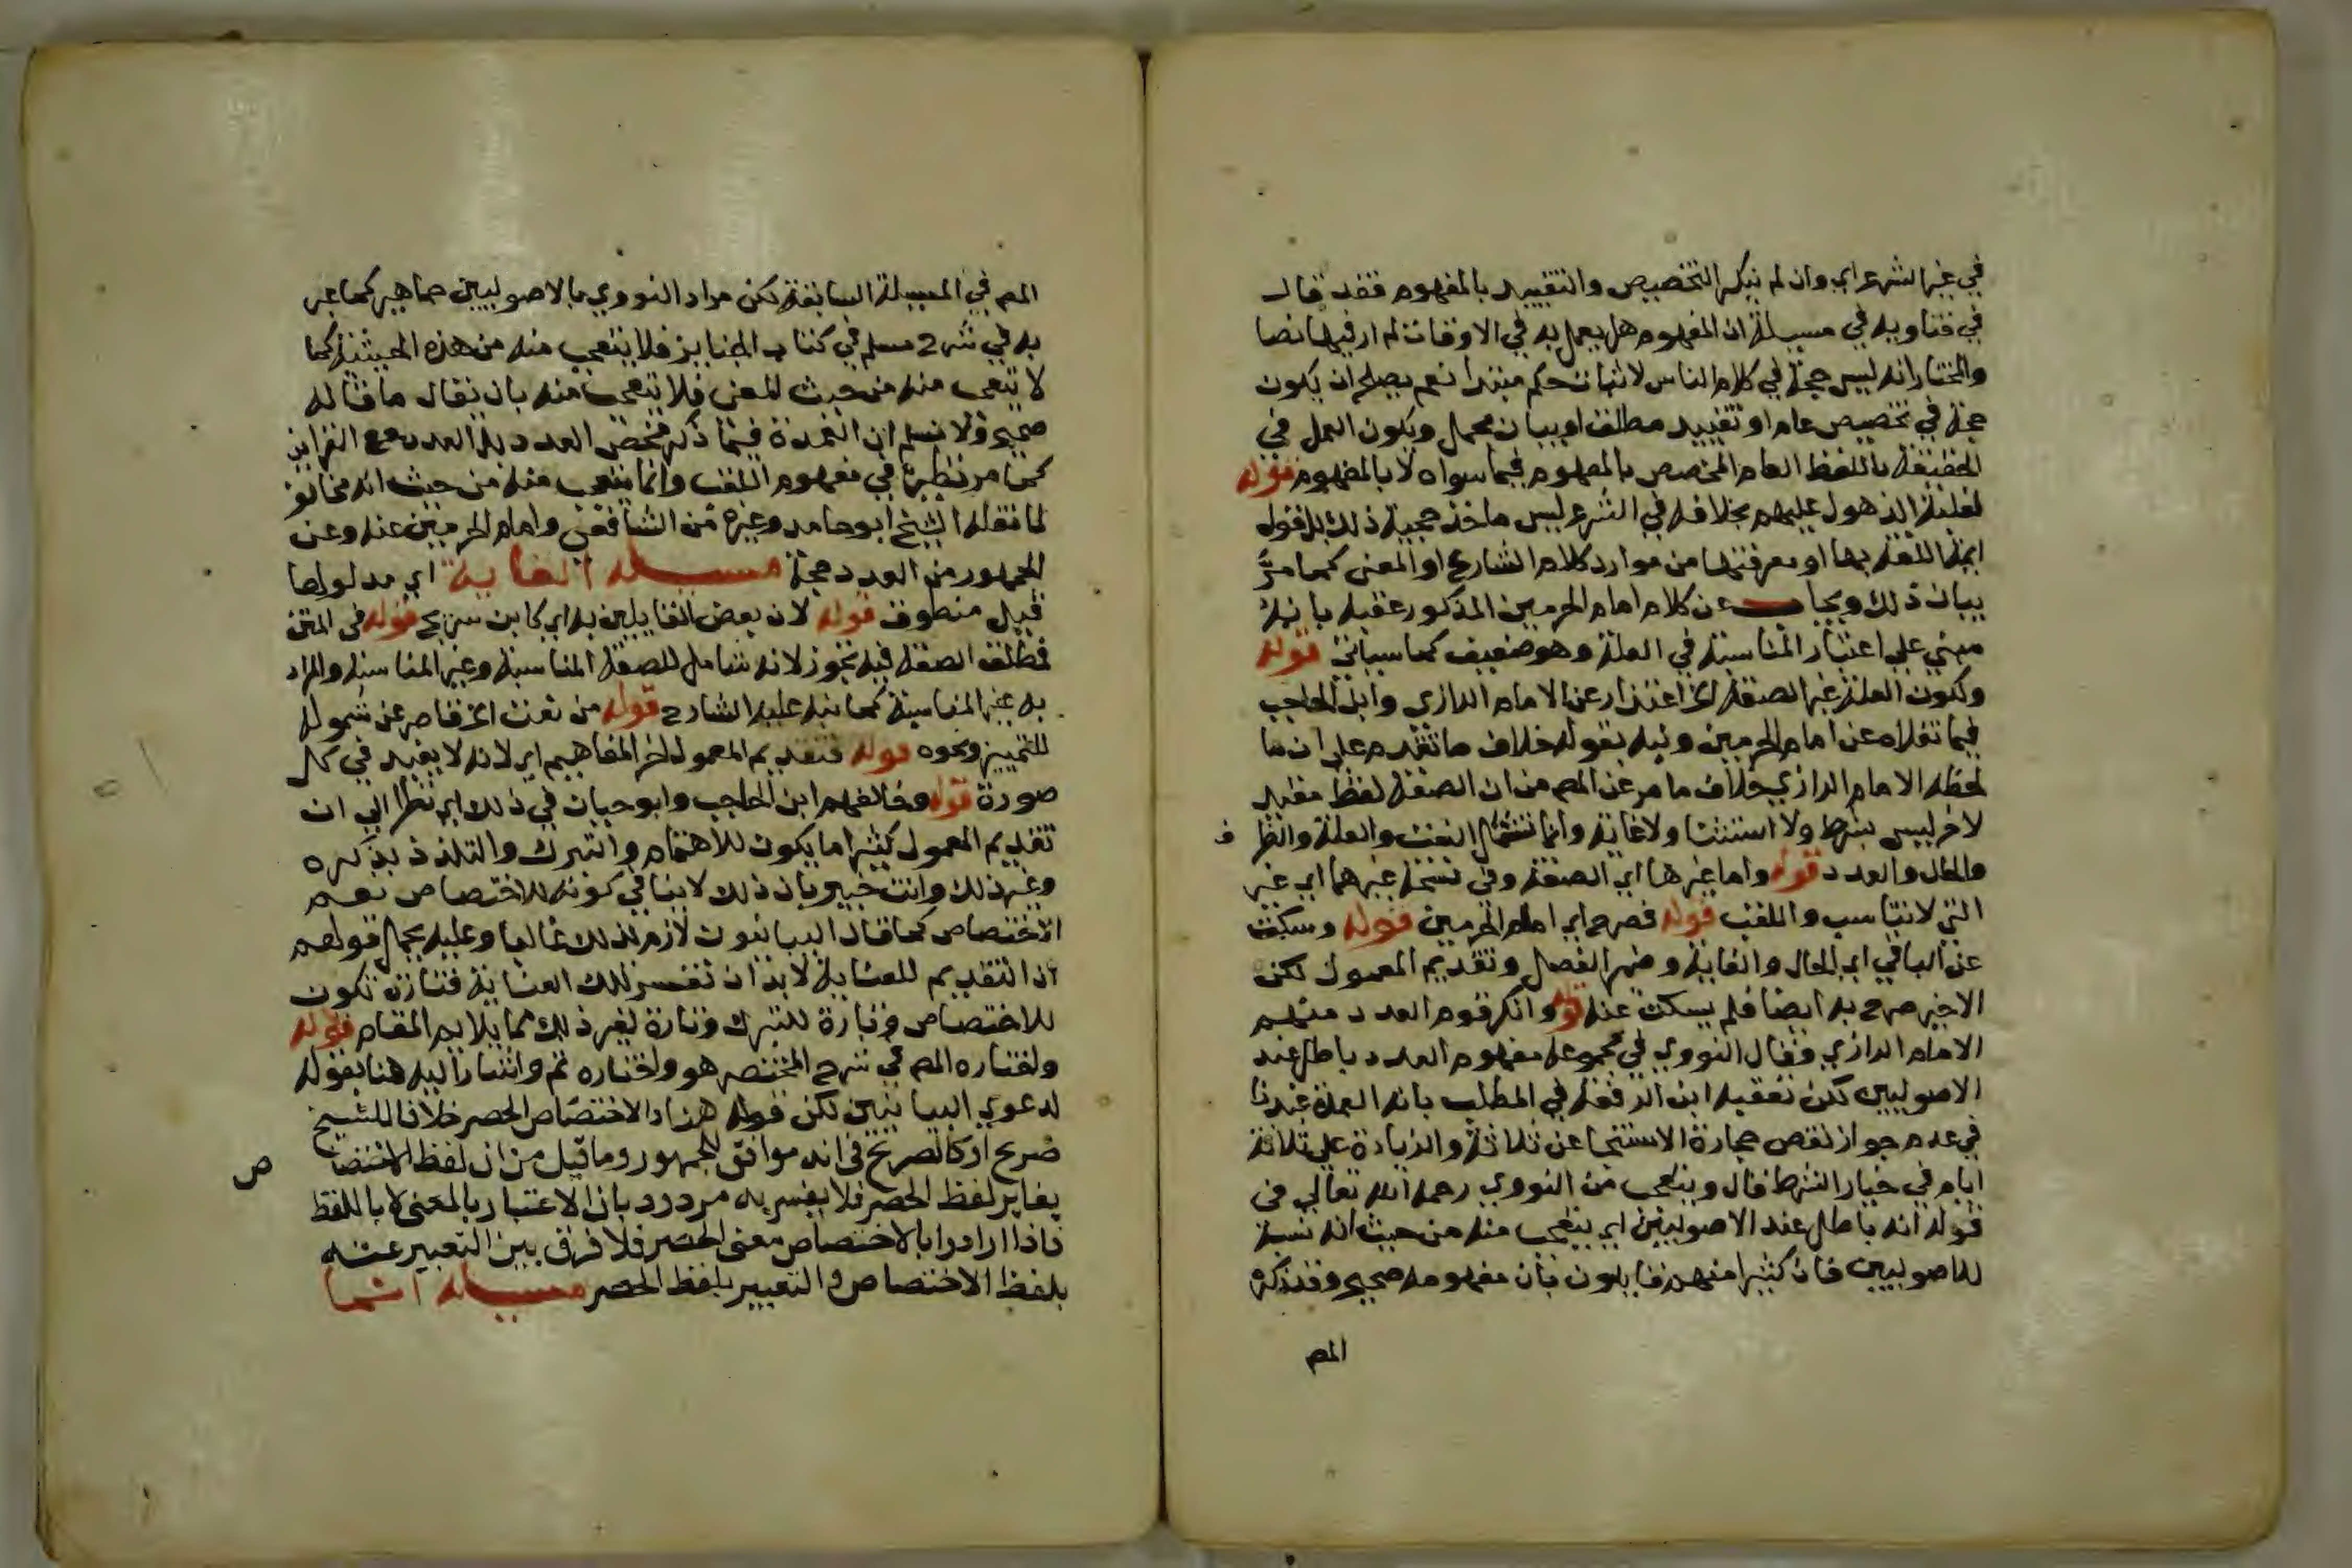 في غير الشرع اي وان لم ينكر التخصيص والتقييد بالمفهوم فقد قال
في فتاويه في مسيلة ان المفهوم هل يعمل به في الاوقاف لم ار فيها نصا
والمختار انه ليس حجة في كلام الناس لاثبات حكم مبتدأ نعم يصلح ان يكون
حجة في تخصيص عام او تقييد مطلق او بيان مجمل ويكون العمل في
الحقيقة باللفظ العام المخصص بالمفهوم فيما سواه لا بالمفهوم قوله
لغلبة الذهول عليهم بخلافه في الشرع ليس ماخذ حجية ذلك بل قول
ايمة اللغة بها او معرفتها من موارد كلام الشارع او المعنى كما مر
بيان ذلك ويجاب عن كلام امام الحرمين المذكور عقبه بانه
مبني على اعتبار المناسبة في العلة وهو ضعيف كما سياتي قوله
ولكون العلة غير الصفة الخ اعتذار عن الامام الرازي وابن الحاجب
فيما نقلاه عن امام الحرمين ونبه بقوله خلاف ما تقدم على ان ما
لحظه الامام الرازي خلاف ما مر عن المص من ان الصفة لفظ مقيد
لاخر ليس بشرط ولا استثنا ولا غاية وانما تشمل النعت والعلة والظر ف
والحال والعدد قوله واما غيرها اي الصفة وفي نسخة غيرهما اي غير
التي لا تناسب واللقب قوله فصرح اي امام الحرمين قوله وسكت
عن الباقي اي الحال والغاية وضمير الفصل وتقديم المعمول لكن
الاخير صرح به ايضا فلم يسكت عنه قوله وانكر قوم العدد منهم
الامام الرازي وقال النووي في مجموعه مفهوم العدد باطل عند
الاصوليين لكن تعقبه ابن الرفعة في المطلب بانه العمدة عندنا
في عدم جواز نقص حجارة الاستنجا عن ثلاثة والزيادة على ثلاثة
ايام في خيار الشرط قال ويتعجب من النووي رحمه الله تعالى في
قوله انه باطل عند الاصوليين اي يتعجب منه من حيث انه نسبه
للاصوليين فان كثيرا منهم قايلون بان مفهومه صحيح وقد ذكره
المص
المص في المسيلة السابقة لكن مراد النووي بالاصوليين جماهيرهم كما عبر
به في شرح مسلم في كتاب الجنايز فلا يتعجب منه من هذه الحيثية كما
لا يتعجب منه من حيث المعنى فلا يتعجب منه بان يقال ما قاله
صحيح ولا نسلم ان العمدة فيما ذكر محض العدد بل العدد مع القراين
كما مر نظيره في مفهوم اللقب وانما يتعجب منه من حيث انه مخالف
لما نقله الشيخ ابو حامد وغيره عن الشافعي وامام الحرمين عنه وعن
الجمهور من العدد حجة مسيلة الغاية اي مدلولها
قيل منطوق قوله لان بعض القايلين به اي كابن سريج قوله في المتن
فمطلق الصفة فيه تجوز لانه شامل للصفة المناسبة وغير المناسبة والمراد
به غير المناسبة كما نبه عليه الشارح قوله من نعت الخ قاصر عن شموله
للتمييز ونحوه قوله فتقديم المعمول اخر المفاهيم اي لانه لا يفيد في كل
صورة قوله وخالفهم ابن الحاجب وابو حيان في ذلك اي نظرا الى ان
تقديم المعمول كثيرا ما يكون للاهتمام والتبرك والتلذذ بذكره
وغير ذلك وانت خبير بان ذلك لا ينافي كونه للاختصاص نعم
الاختصاص كما قال البيانيون لازم لذلك غالبا وعليه يحمل قولهم
ان التقديم للعناية لا بد ان تفسر تلك العناية فتارة تكون
للاختصاص وتارة للتبرك وتارة لغير ذلك مما يلايم المقام قوله
واختاره المص في شرح المختصر هو واختاره ثم واشار اليه هنا بقوله
لدعوى البيانيين لكن قوله هنا والاختصاص الحصر خلافا للشيخ
صريح او كالصريح في انه موافق للجمهور وما قيل من ان لفظ الاختصا ص
يغاير لفظ الحصر فلا يفسر به مردود بان الاعتبار بالمعنى لا باللفظ
فاذا ارادوا بالاختصاص معنى الحصر فلا فرق بين التعبير عنه
بلفظ الاختصاص والتعبير بلفظ الحصر مسيلة انما